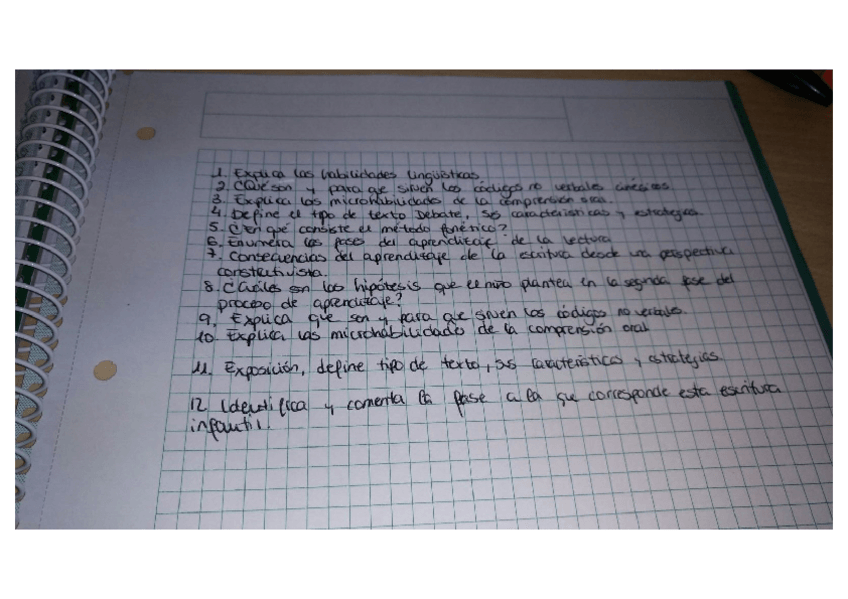 1. Explica las habilidades lingüísticas
2. ¿Qué son y para que sirven los códigos no verbales cinésicos
3. Explica las microhabilidades de la comprensión oral.
4. Define el tipo de texto Debate, ss características y estrategias.
5. ¿En qué consiste el método fonético?
6. Enumera las fases del aprendizaje de la lectura
7. Consecuencias del aprendizaje de la escritura desde una perspectiva
constructivista.
8. ¿Cuáles son las hipótesis que el niño plantea en la segunda fase del
proceso de aprendizaje?
9. Explica que son y para que sirven los códigos no verbales.
10. Explica las microhabilidades de la comprensión oral
11. Exposición, define tipo de texto, ss características y estrategias
12 Identifica y comenta la fase a la que corresponde esta escritura
infantil.